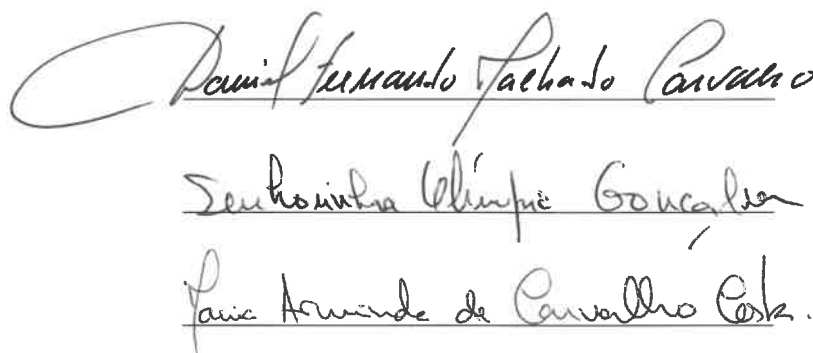 Daniel Fernando Machado Carvalho
Senhorinha Olímpia Gonçalves
Maria Arminda de Carvalho Costa.